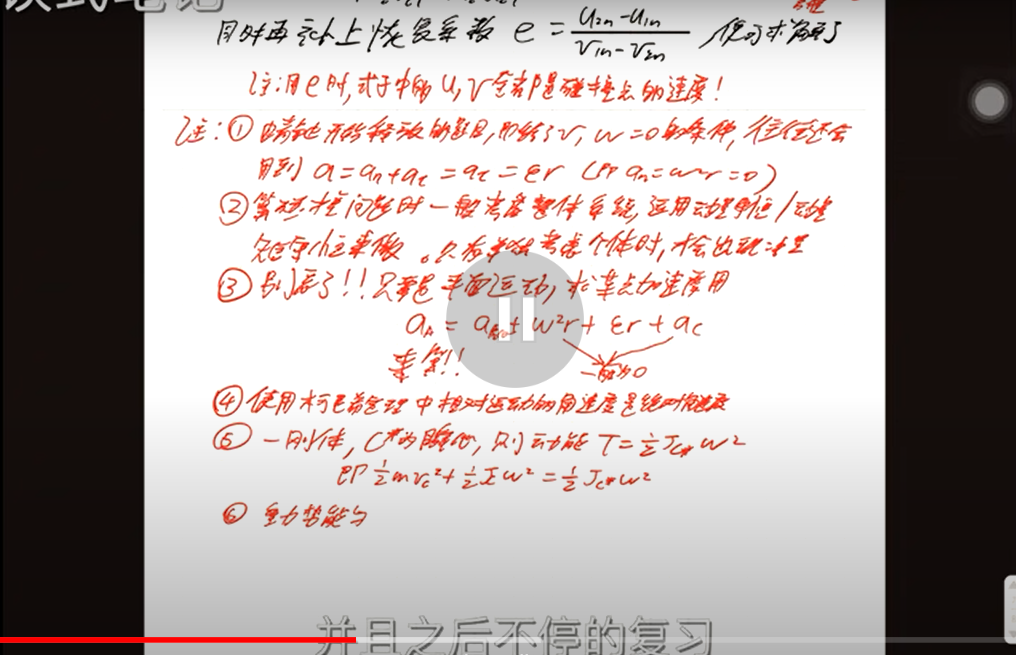 谈式笔记
同时再补上恢复系数 e = (u₂ₙ-u₁ₙ)/(v₁ₙ-v₂ₙ) 便可求解了
注:用e时,式子中的u,v全部是碰撞点的速度!
注:① 由静止开始释放的题目,即给了v,w=0的条件,往往还会
用到 a=aₙ+aτ=aτ=εr (即 aₙ=w²r=0)
② 算碰撞问题时一般考虑整体系统,运用动量守恒/动量
矩守恒来做。只有单独考虑个体时,才会出现冲量
③ 别忘了!!只要是平面运动,求某点加速度用
a = a + w²r + εr + ac
来算!! 一般为0
④ 使用柯尼希定理中相对运动的角速度是绝对角速度
⑤ 一刚体,C*为瞬心,则动能 T=½Jc*w²
即 ½mvc²+½Jw²=½Jc*w²
⑥ 重力势能与
并且之后不停的复习